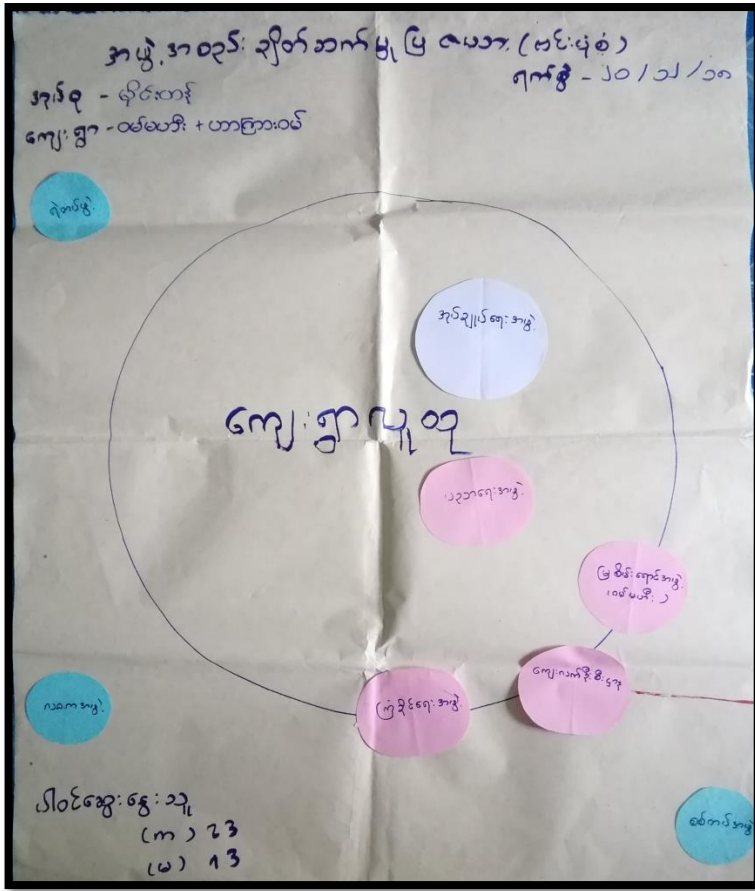 အဖွဲ့အစည်း ချိတ်ဆက်မှု ပြ ဇယား (ဗင်းပုံစံ)
ရက်စွဲ - ၂၀/၁၂/၁၈
အုပ်စု - မိုင်းဟန်
ကျေးရွာ - ဝမ်မဟီး + ဟာကြားဝမ်
ရဲတပ်ဖွဲ့
အုပ်ချုပ်ရေးအဖွဲ့
ကျေးရွာလူထု
ပညာရေးအဖွဲ့
မြစိမ်းရောင်အဖွဲ့
(ဝမ်မဟီး)
ကျေးလက်မီးစီးဌာန
ကြံ့ခိုင်ရေးအဖွဲ့
လဝကအဖွဲ့
စစ်တပ်အဖွဲ့
ပါဝင်ဆွေးနွေးသူ
(က) 23
(မ) 13